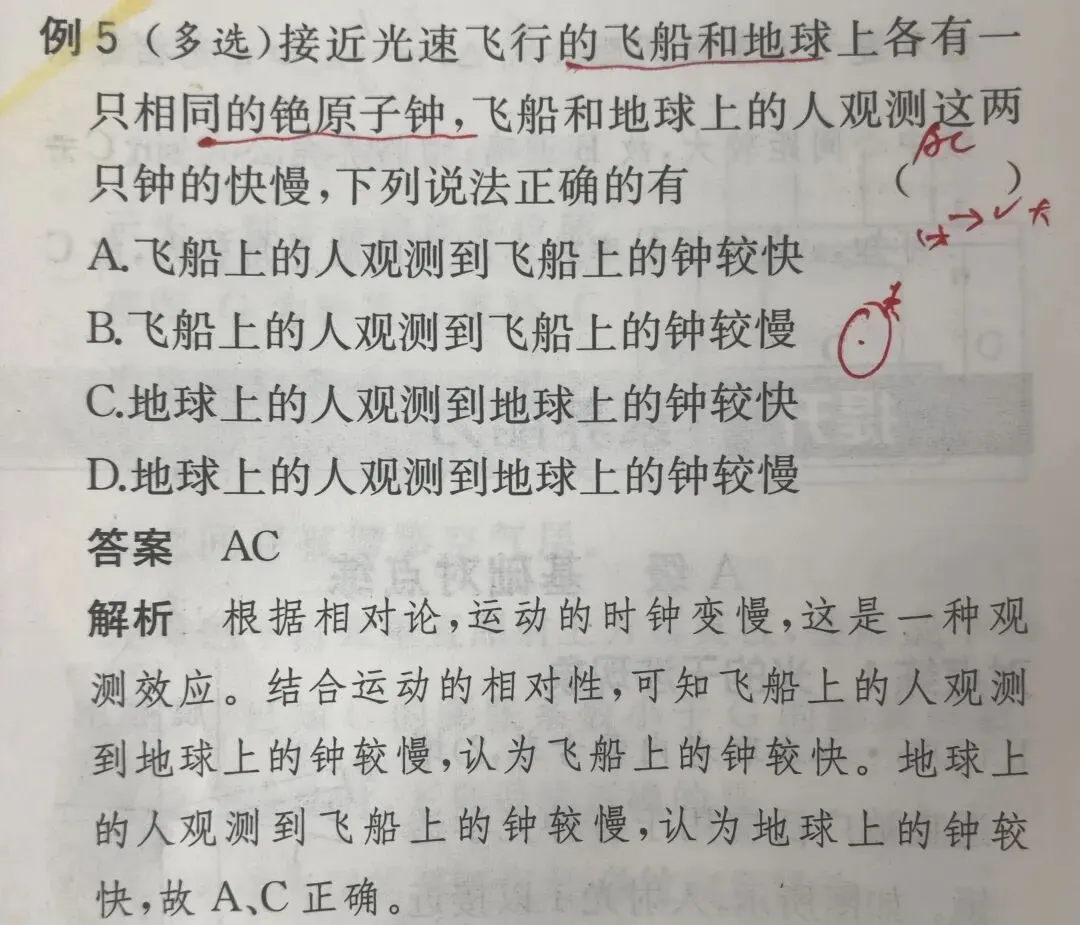 例5（多选）接近光速飞行的飞船和地球上各有一
只相同的铯原子钟，飞船和地球上的人观测这两
AC
只钟的快慢，下列说法正确的有（ ）
A.飞船上的人观测到飞船上的钟较快
B.飞船上的人观测到飞船上的钟较慢
C.地球上的人观测到地球上的钟较快
D.地球上的人观测到地球上的钟较慢
答案 AC
解析 根据相对论，运动的时钟变慢，这是一种观
测效应。结合运动的相对性，可知飞船上的人观测
到地球上的钟较慢，认为飞船上的钟较快。地球上
的人观测到飞船上的钟较慢，认为地球上的钟较
快，故A、C正确。